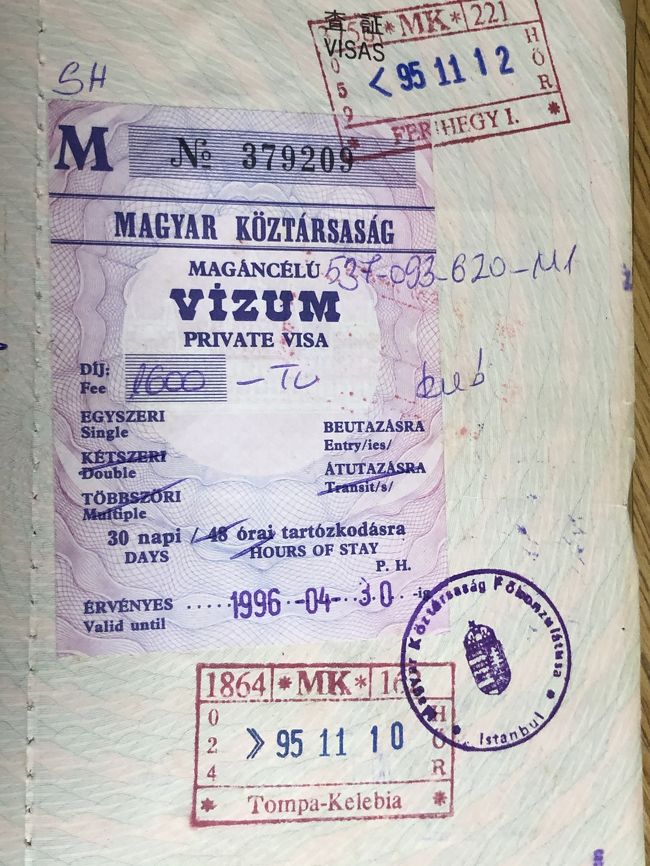 査 証
VISAS
*MK* 221
0
5
9
< 95 11 12
H
Ő
R
FERIHEGY I. *
SH
M
№ 379209
MAGYAR KÖZTÁRSASÁG
MAGÁNCÉLÚ
537-093-620-M1
VÍZUM
PRIVATE VISA
DÍJ:
Fee
1600
EGYSZERI
Single
BEUTAZÁSRA
Entry/ies/
KÉTSZERI
Double
ÁTUTAZÁSRA
Transit/s/
TÖBBSZÖRI
Multiple
30 napi / 48 órai tartózkodásra
DAYS HOURS OF STAY
P. H.
ÉRVÉNYES ..... 1996 -04- 30 -ig
Valid until
Magyar Köztársaság Főkonzulátusa
Istanbul
1864 *MK*
0
2
4
>> 95 11 10
H
Ő
R
* Tompa-Kelebia *